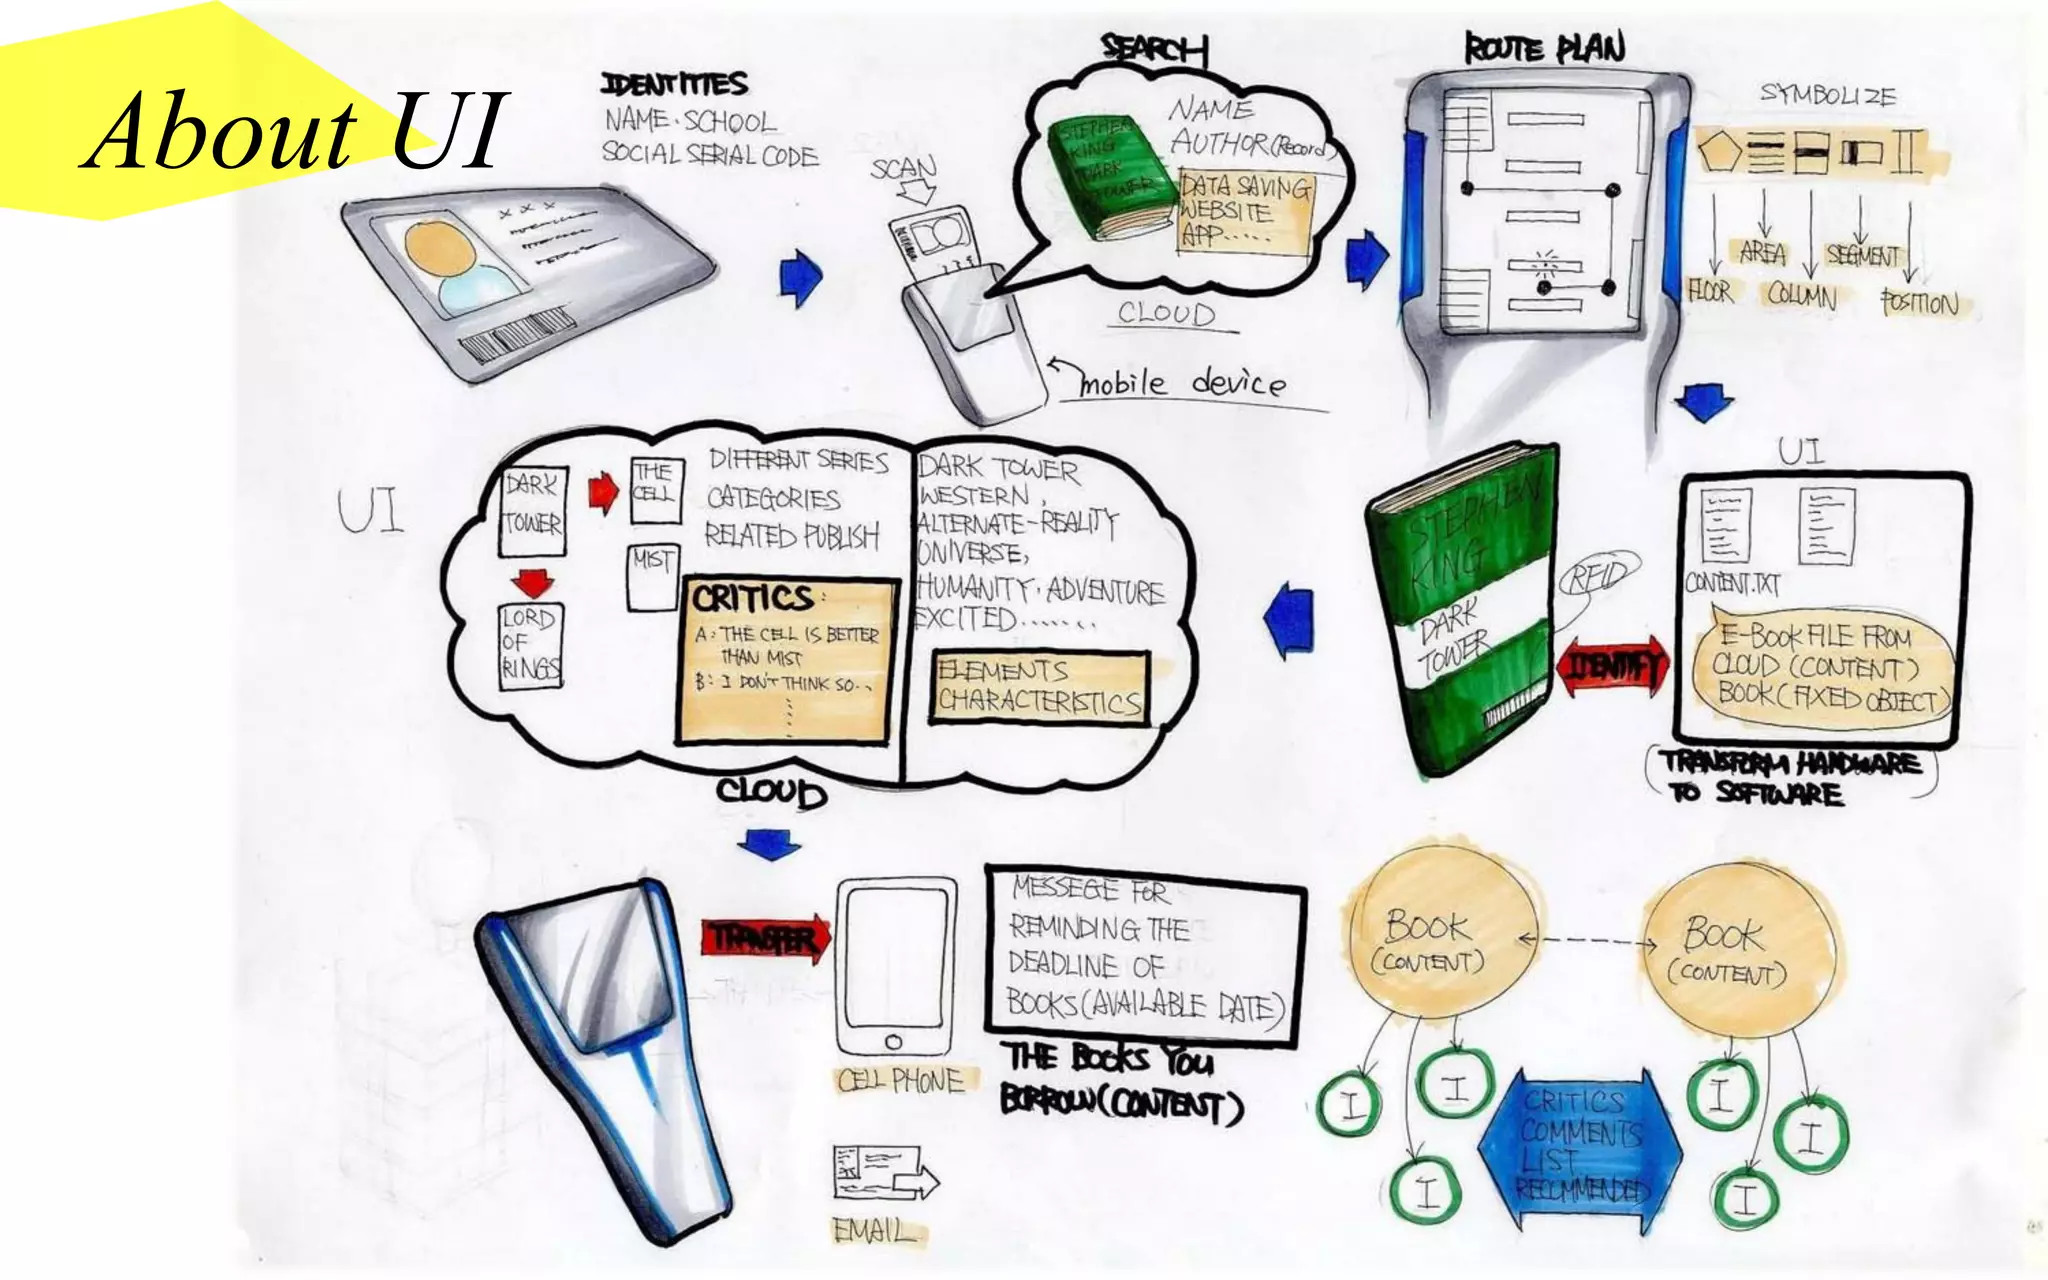 About UI
IDENTITIES
NAME. SCHOOL
SOCIAL SERIAL CODE
X X X
SCAN
SEARCH
STEPHEN
KING
DARK
TOWER
NAME
AUTHOR (Record)
DATA SAVING
WEBSITE
APP......
CLOUD
mobile device
ROUTE PLAN
SYMBOLIZE
AREA
SEGMENT
FLOOR
COLUMN
POSITION
UI
DARK
TOWER
THE
CELL
MIST
LORD
OF
RINGS
DIFFERENT SERIES
CATEGORIES
RELATED PUBLISH
CRITICS:
A: THE CELL IS BETTER
THAN MIST
B: I DON'T THINK SO..
DARK TOWER
WESTERN,
ALTERNATE-REALITY
UNIVERSE,
HUMANITY, ADVENTURE
EXCITED.......
ELEMENTS
CHARACTERISTICS
CLOUD
STEPHEN
KING
DARK
TOWER
RFID
IDENTIFY
UI
CONTENT.TXT
E-BOOK FILE FROM
CLOUD (CONTENT)
BOOK (FIXED OBJECT)
(TRANSFORM HARDWARE
TO SOFTWARE)
TRANSFER
CELL PHONE
EMAIL
MESSEGE FOR
REMINDING THE
DEADLINE OF
BOOKS (AVAILABLE DATE)
THE BOOKS YOU
BORROW (CONTENT)
BOOK
(CONTENT)
BOOK
(CONTENT)
I
I
I
I
I
I
CRITICS
COMMENTS
LIST
RECOMMENDED